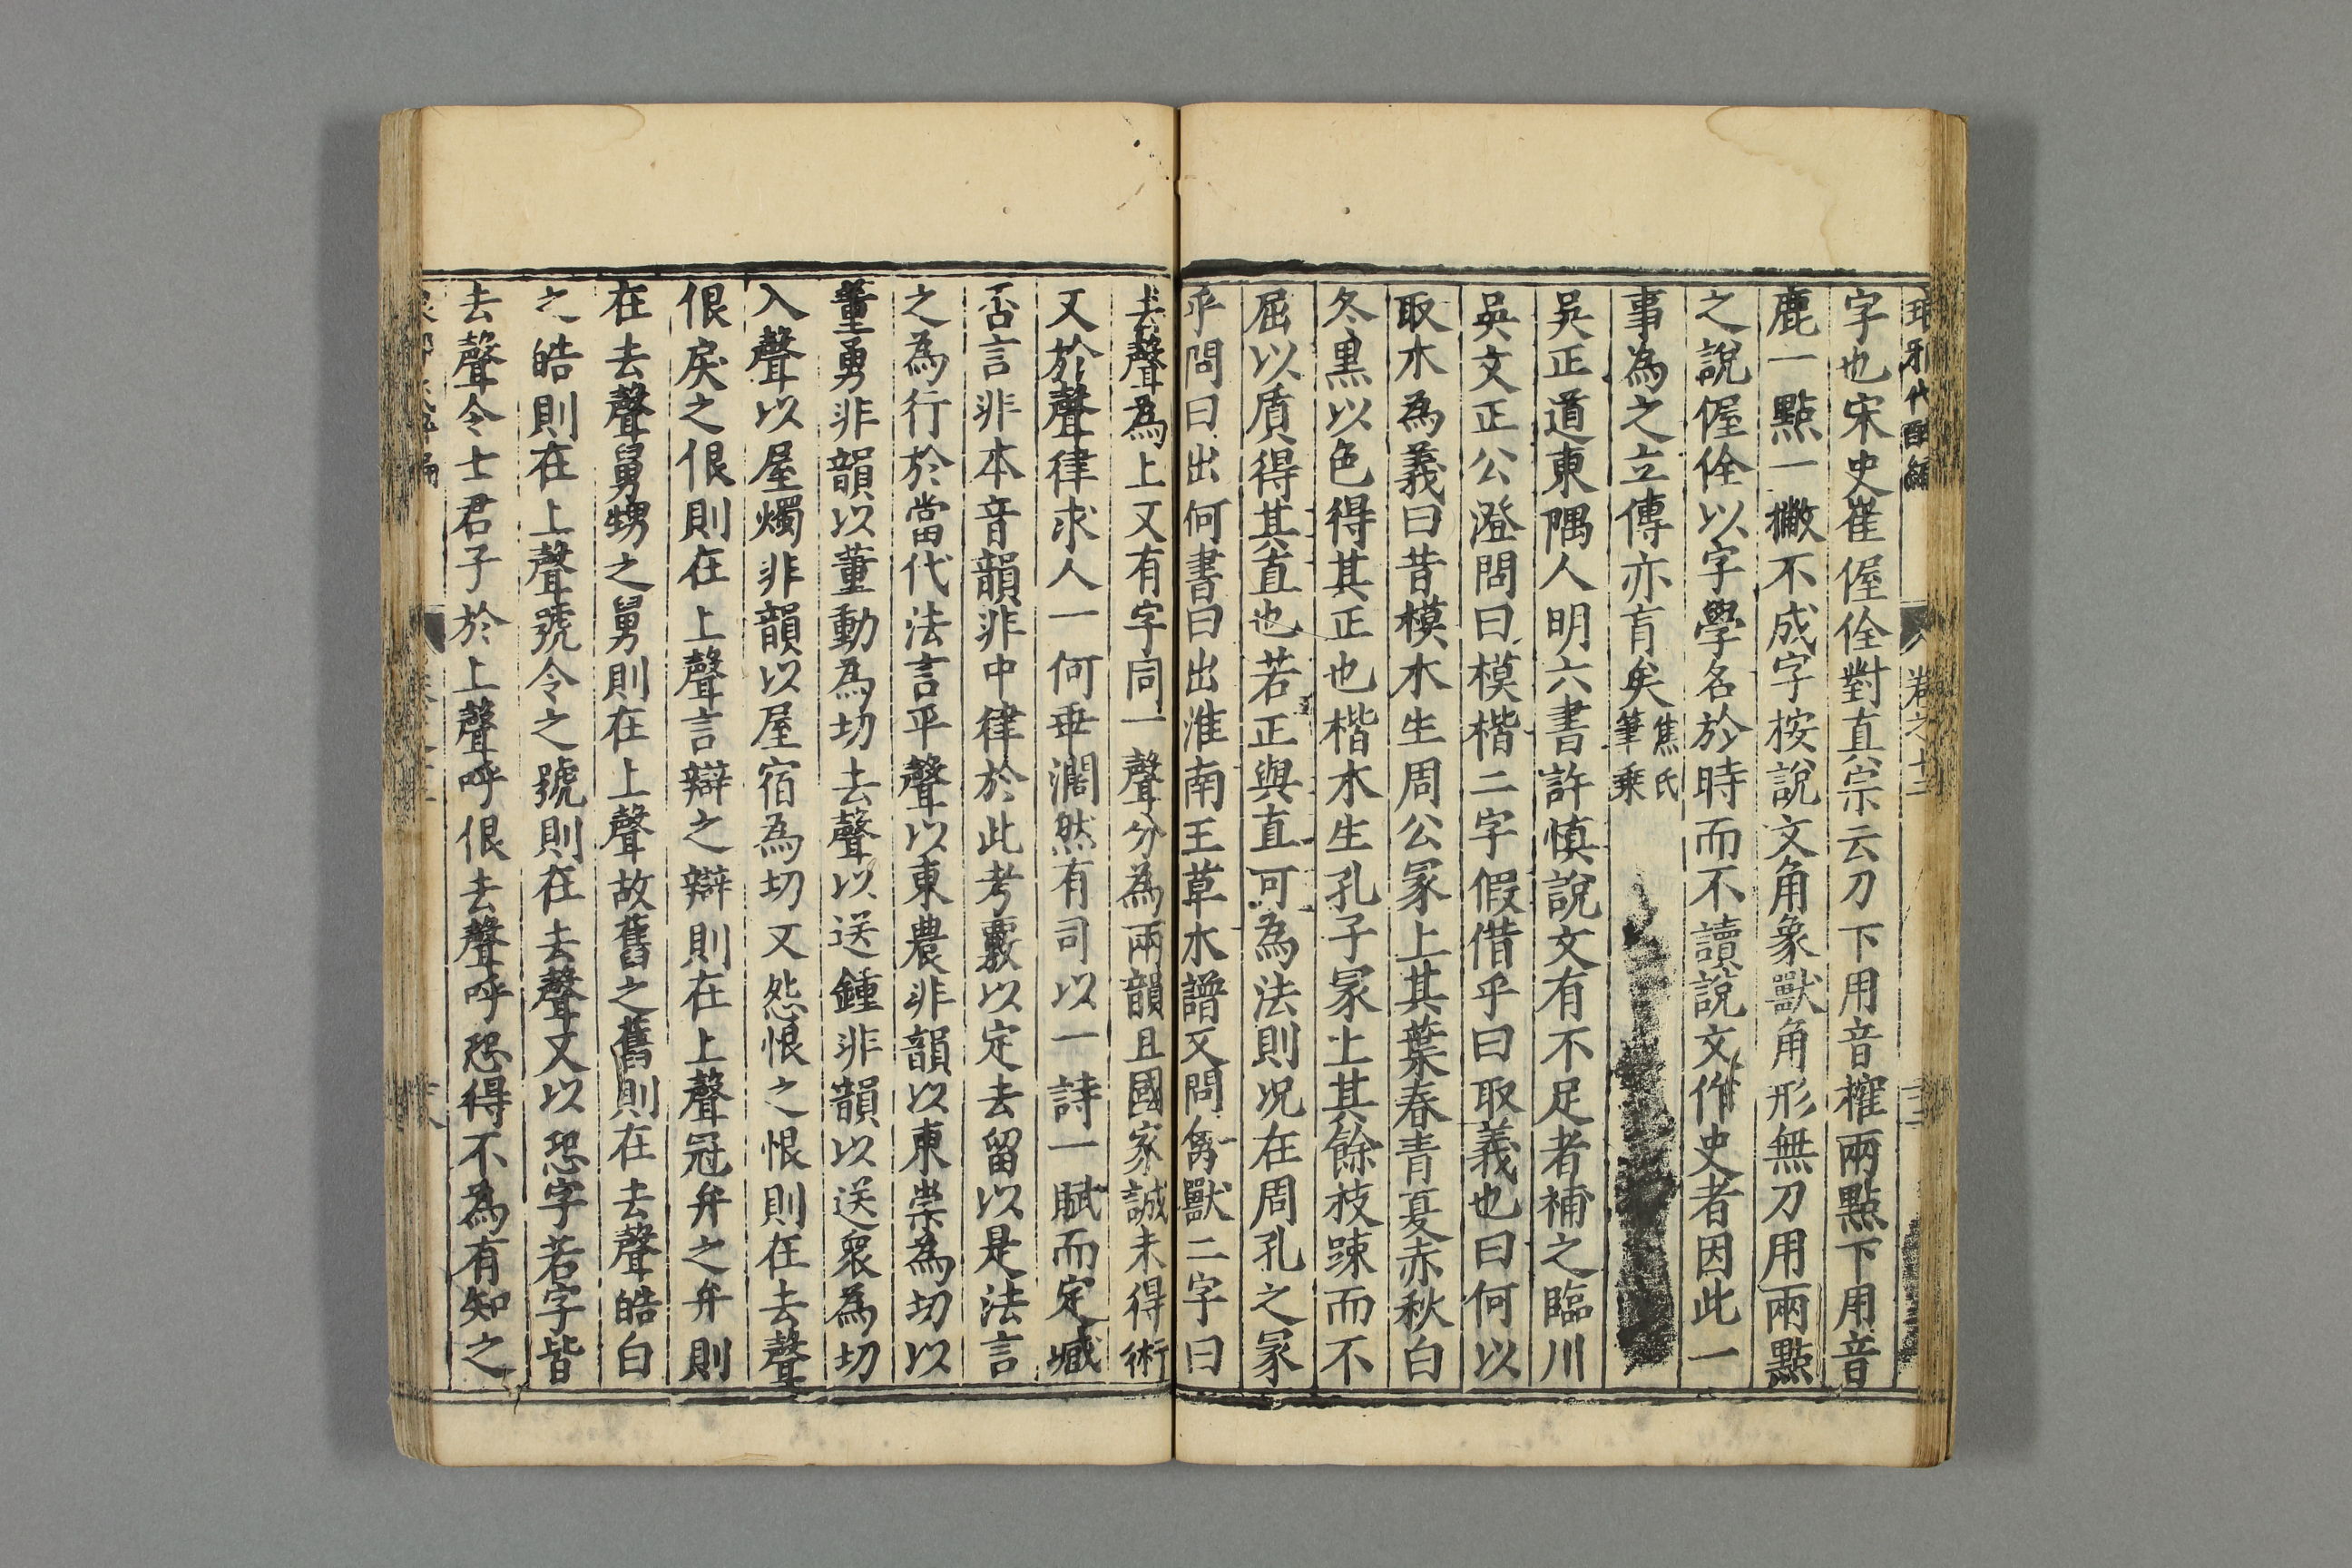 琅邪代醉編 卷之十三
字也宋史崔偓佺對真宗云刀下用音榷兩點下用音
鹿一點一撇不成字按說文角象獸角形無刀用兩點
之說偓佺以字學名於時而不讀說文作史者因此一
事為之立傳亦肓矣焦氏筆乗
吳正道東隅人明六書許慎說文有不足者補之臨川
吳文正公澄問曰模楷二字假借乎曰取義也曰何以
取木為義曰昔模木生周公冢上其葉春青夏赤秋白
冬黑以色得其正也楷木生孔子冢上其餘枝踈而不
屈以質得其直也若正與直可為法則况在周孔之冢
乎問曰出何書曰出淮南王草木譜又問禽獸二字曰
去聲為上又有字同一聲分為兩韻且國家誠未得術
又於聲律求人一何乖濶然有司以一詩一賦而定臧
否言非本音韻非中律於此考覈以定去留以是法言
之為行於當代法言平聲以東農非韻以東崇為切以
董勇非韻以董動為切去聲以送鍾非韻以送衆為切
入聲以屋燭非韻以屋宿為切又怨恨之恨則在去聲
佷戾之佷則在上聲言辯之辯則在上聲冠弁之弁則
在去聲舅甥之舅則在上聲故舊之舊則在去聲皓白
之皓則在上聲號令之號則在去聲又以恐字若字皆
去聲令士君子於上聲呼佷去聲呼恐得不為有知之